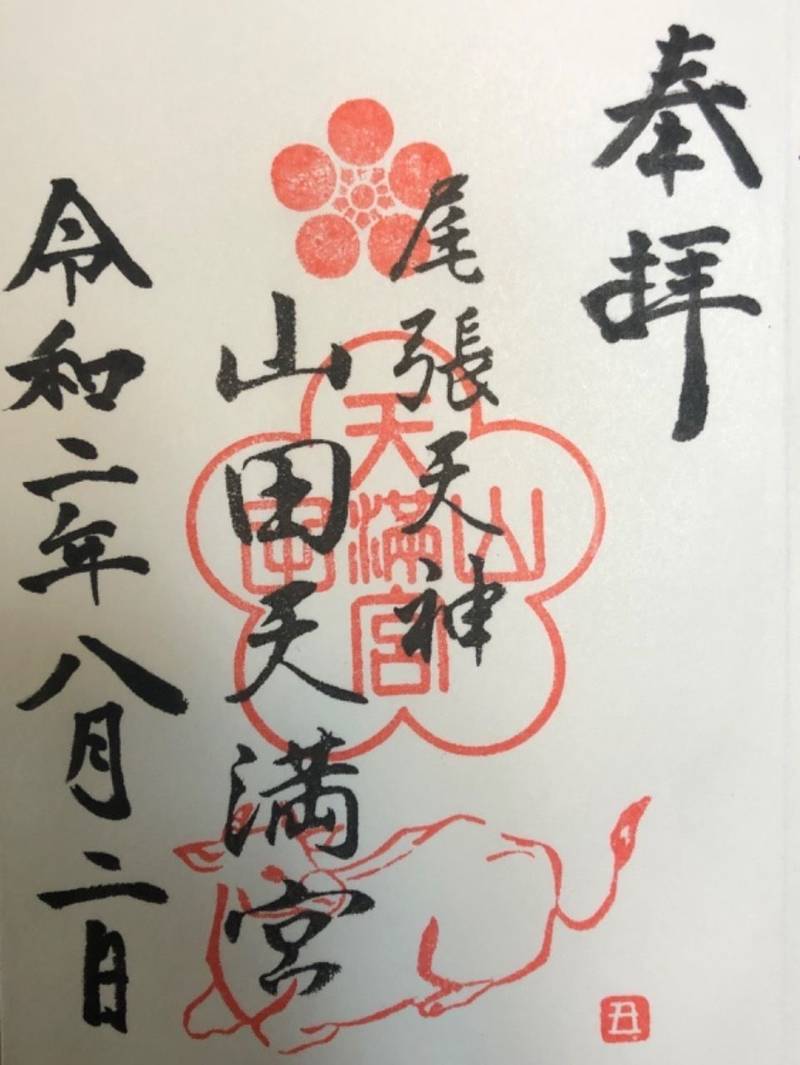 奉拝
尾張天神
山田天満宮
令和二年八月二日
山田天満宮
丑